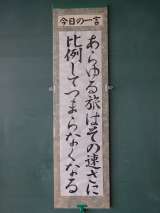 今日の一言
あらゆる旅はその速さに
比例してつまらなくなる